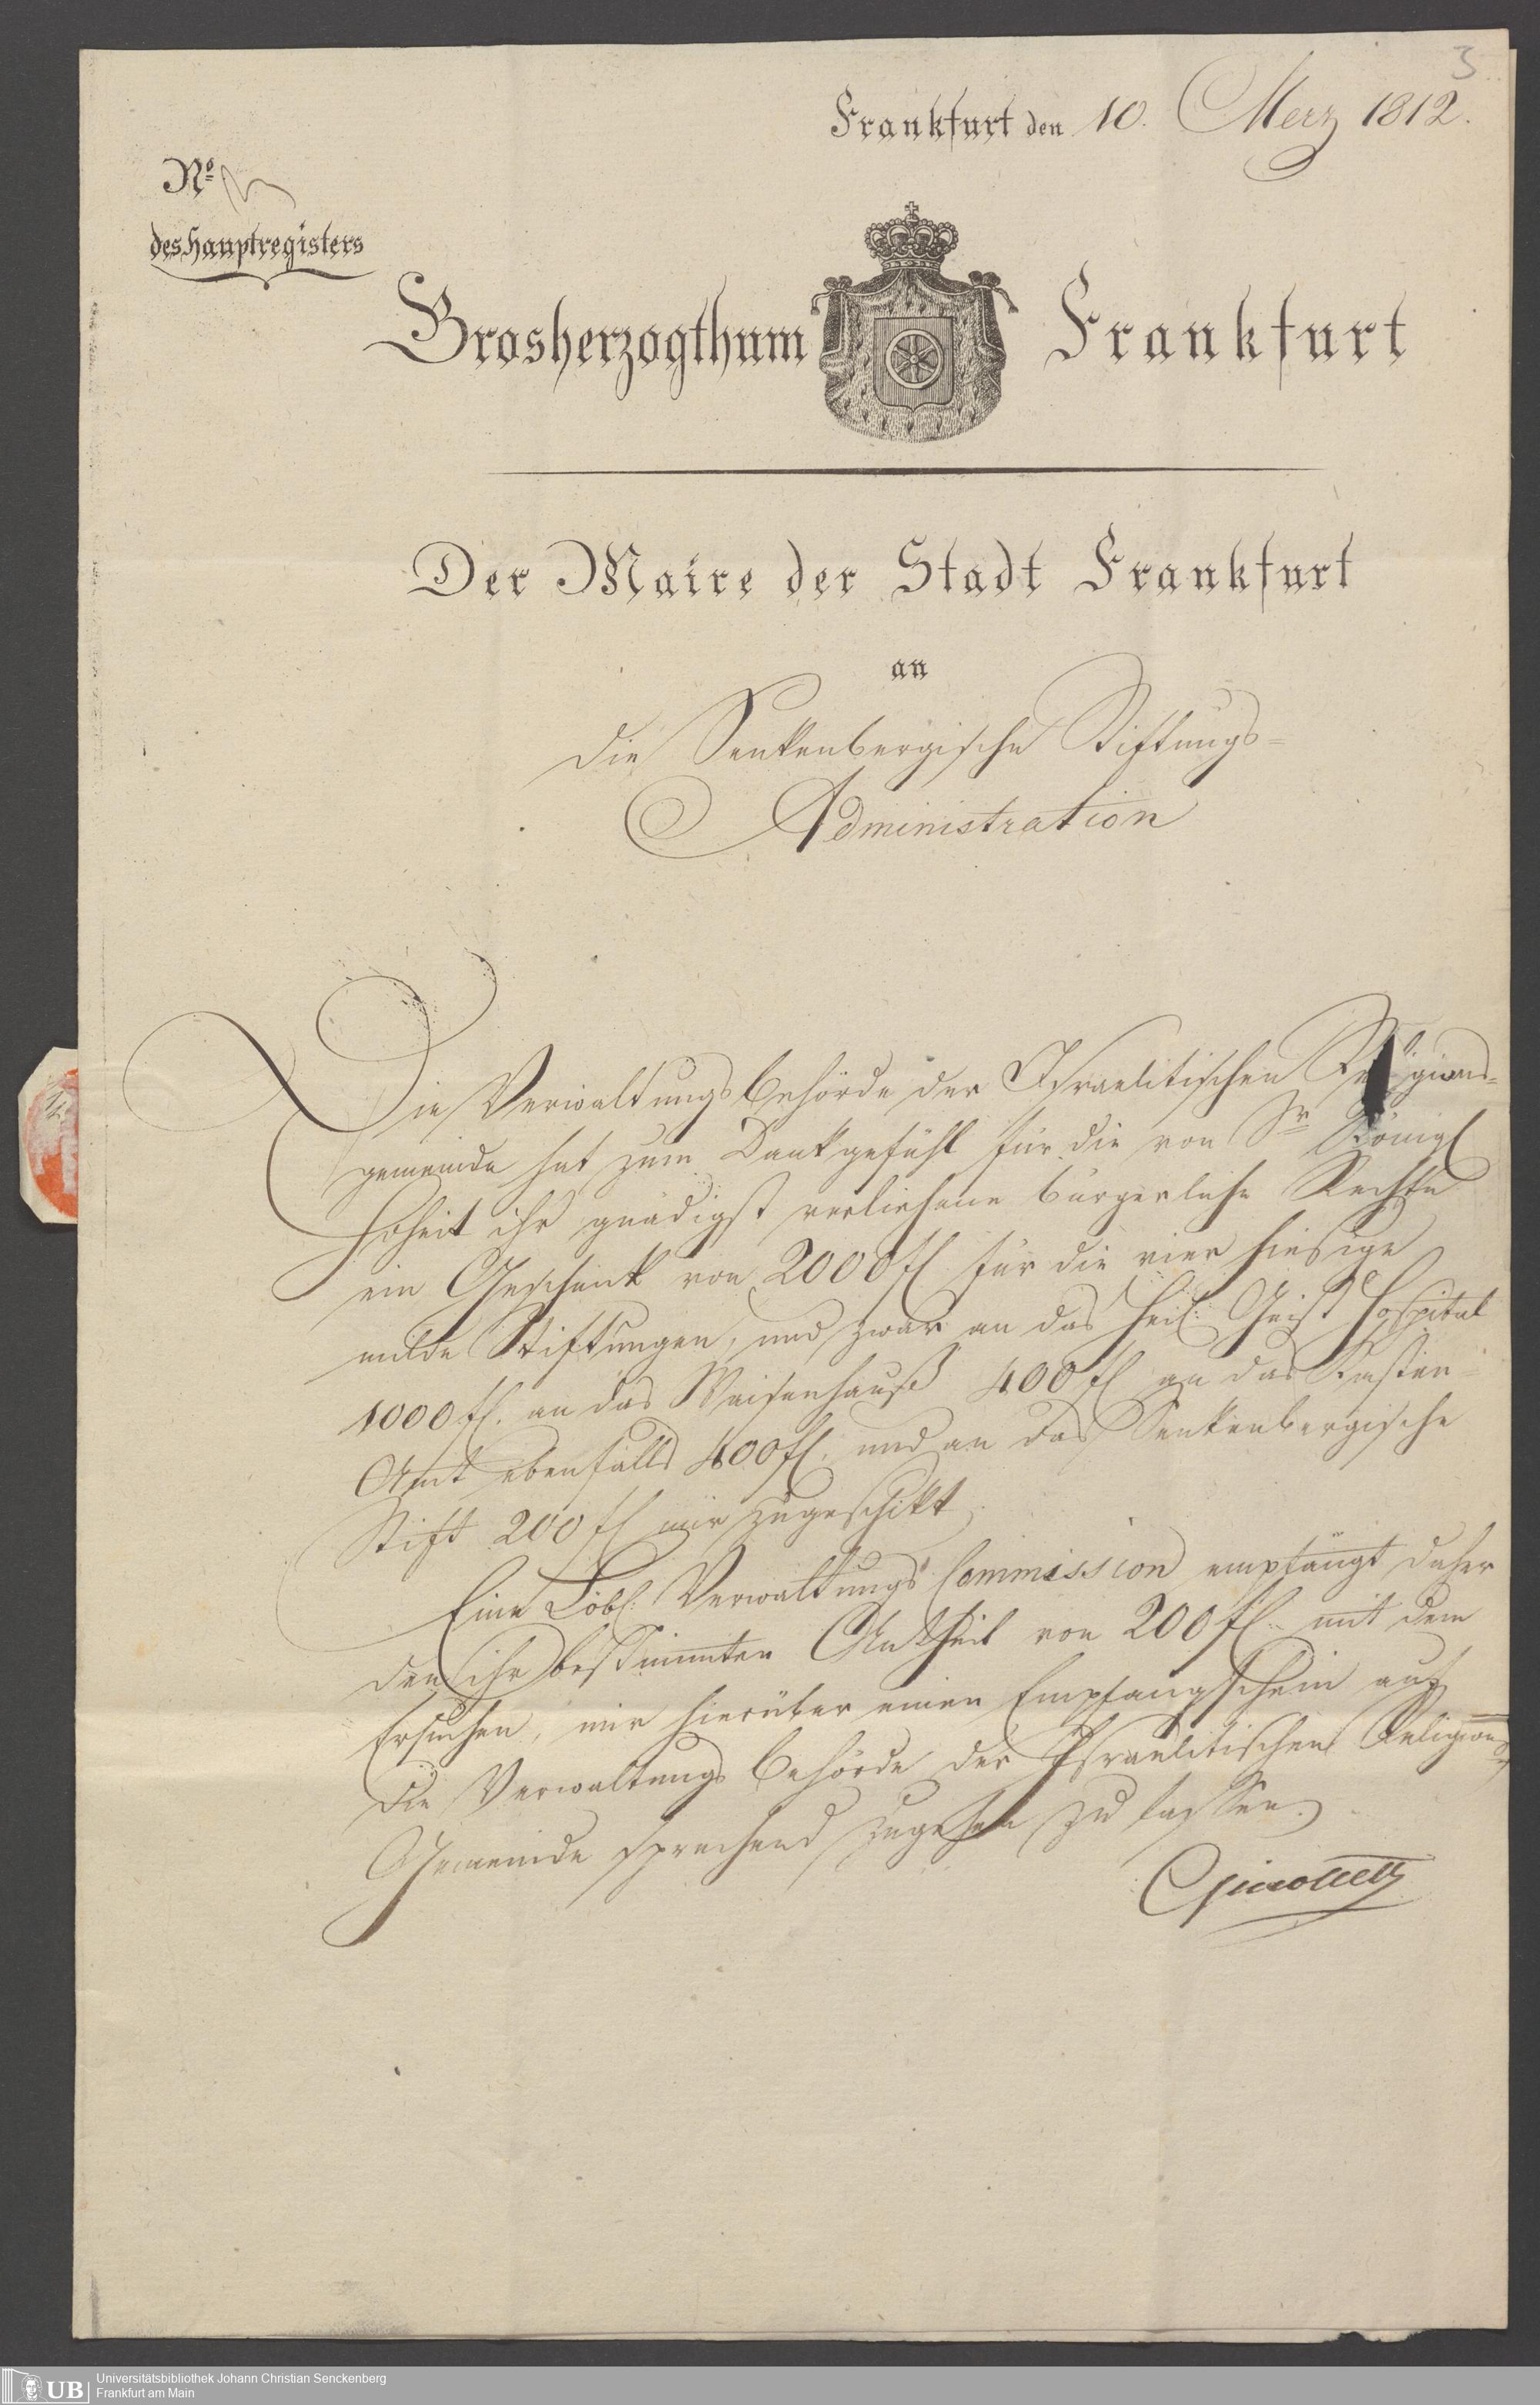 3
Frankfurt den 10. Merz 1812.
No
des Hauptregisters
Grosherzogthum Frankfurt
Der Maire der Stadt Frankfurt
an
die Senkenbergische Stiftungs=
Administration
Die Verwaltungs behörde der Israelitischen Religions=
gemeinde hat zum Dankgefühl für die von Sr Königl
Hoheit ihr gnädigst verliehene bürgerliche Rechte
ein Geschenk von 2000 fl für die vier hiesige
milde Stiftungen, und zwar an das heil: Geist Hospital
1000 fl. an das Waisenhauß 400 fl an das Kasten=
Amt ebenfalls 400 fl. und an das Senkenbergische
Stift 200 fl mir zugeschikt.
Eine Löbl: Verwaltungs Commission empfängt daher
den ihr bestimmten Antheil von 200 fl. mit dem
Ersuchen, mir hierüber einen Empfangschein auf
die Verwaltungs behörde der Israelitischen Religions
Gemeinde sprechend zugehen zu lassen.
Guiollett
UB
Universitätsbibliothek Johann Christian Senckenberg
Frankfurt am Main